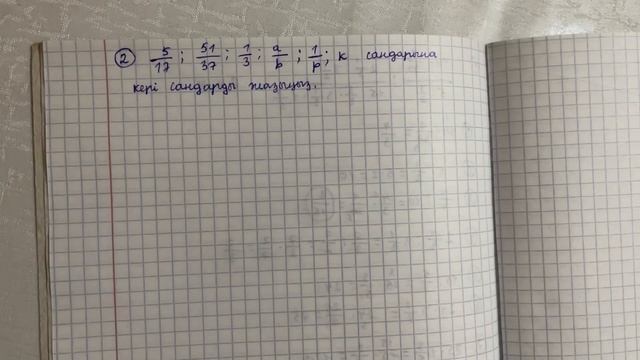 ② 5/17 ; 51/37 ; 1/3 ; a/b ; 1/p ; к сандарына
кері сандарды жазыңыз.